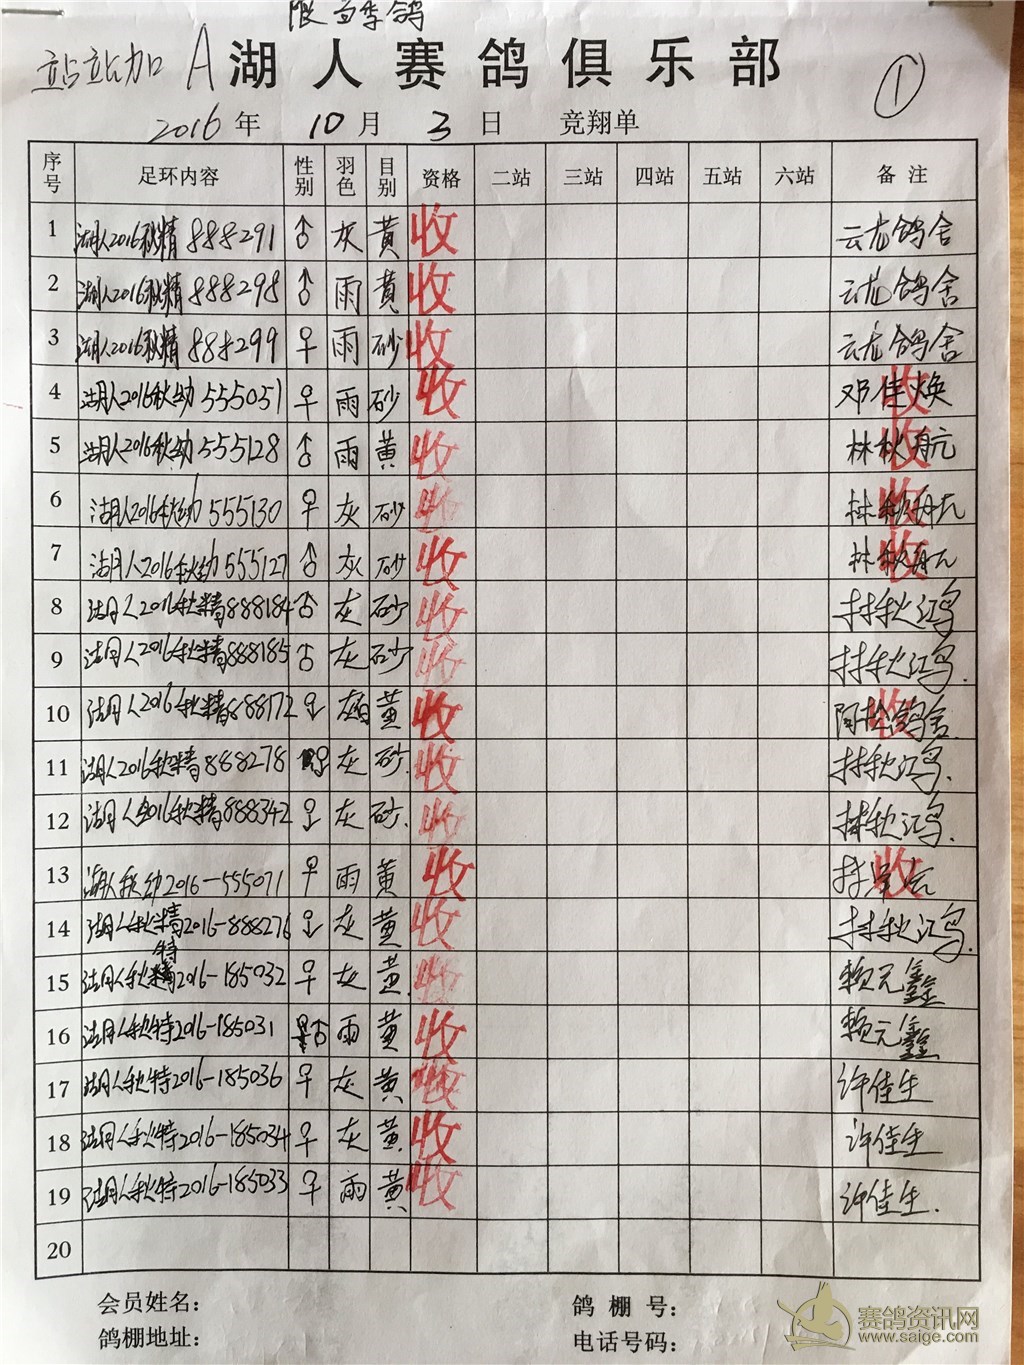 限当季鸽
站站加 A 湖人赛鸽俱乐部 ①
2016 年 10 月 3 日 竞翔单
序号 足环内容 性别 羽色 目别 资格 二站 三站 四站 五站 六站 备注
1 湖人2016秋精 888291 ♂ 灰 黄 收 云龙鸽舍
2 湖人2016秋精 888298 ♂ 雨 黄 收 云龙鸽舍
3 湖人2016秋精 888299 ♀ 雨 砂 收 云龙鸽舍
4 湖人2016秋幼 555051 ♀ 雨 砂 收 邓佳焕 收
5 湖人2016秋幼 555128 ♂ 雨 黄 收 林秋航 收
6 湖人2016秋幼 555130 ♀ 灰 砂 收 林秋航 收
7 湖人2016秋幼 555127 ♂ 灰 砂 收 林秋航 收
8 湖人2016秋精 888184 ♂ 灰 砂 收 林秋鸿
9 湖人2016秋精 888185 ♂ 灰 砂 收 林秋鸿.
10 湖人2016秋精 888172 ♀ 黄 收 鸽舍. 收
11 湖人2016秋精 888278 ♀ 灰 砂. 收 林秋鸿.
12 湖人2016秋精 888342 ♀ 灰 砂. 收 林秋鸿.
13 湖人秋幼2016-555071 ♀ 雨 黄 收 收
14 湖人秋精2016-888276 ♀ 灰 黄 收 林秋鸿.
15 湖人秋特2016-185032 ♀ 灰 黄. 收 赖元鑫
16 湖人秋特2016-185031 ♂ 雨 黄 收 赖元鑫
17 湖人秋特2016-185036 ♀ 灰 黄 收 许佳生
18 湖人秋特2016-185034 ♀ 灰 黄 收 许佳生
19 湖人秋特2016-185033 ♀ 雨 黄 收 许佳生.
20
会员姓名： 鸽棚号：
鸽棚地址： 电话号码：
赛鸽资讯网
www.saige.com